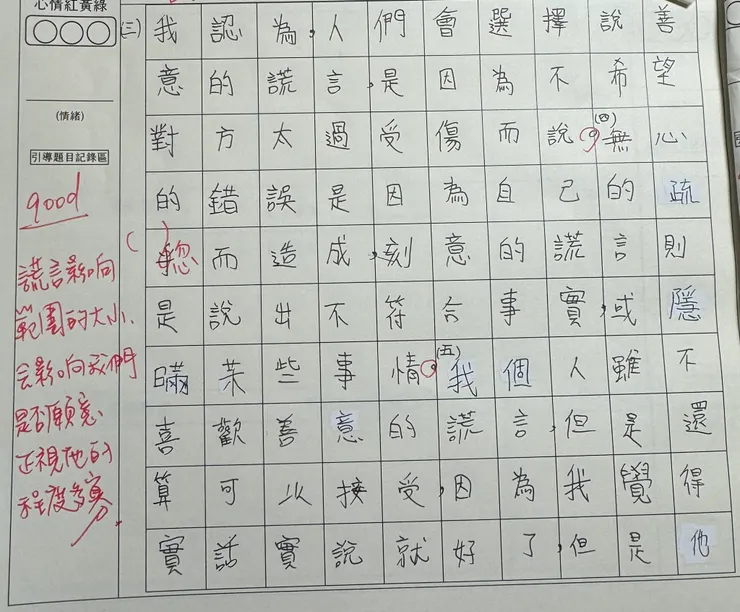 心情紅黃綠
(情緒)
引導題目記錄區
good
謊言影響
範圍的大小,
會影響我們
是否願意
正視他的
程度多寡
(三)我認為,人們會選擇說善
意的謊言,是因為不希望
對方太過受傷而說。(四)無心
的錯誤是因為自己的疏
忽而造成,刻意的謊言則
是說出不符合事實,或隱
瞞某些事情。(五)我個人雖不
喜歡善意的謊言,但是還
算可以接受,因為我覺得
實話實說就好了,但是他